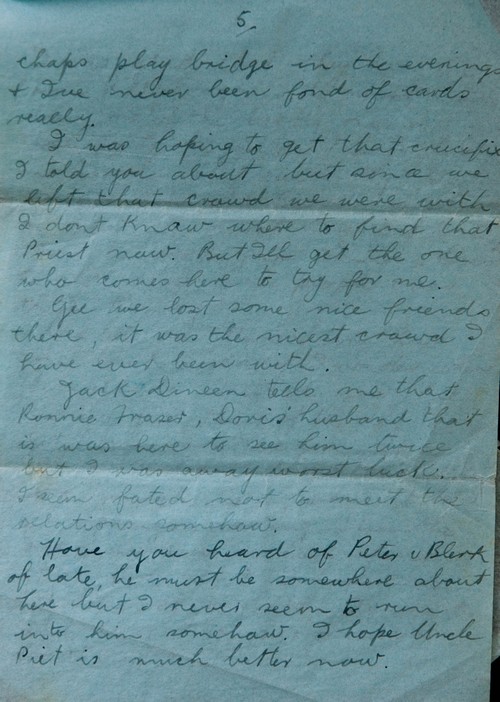 5
chaps play bridge in the evenings
+ I've never been fond of cards
really.
I was hoping to get that crucifix
I told you about but since we
left that crowd we were with
I dont know where to find that
Priest now. But I'll get the one
who comes here to try for me.
Gee we lost some nice friends
there, it was the nicest crowd I
have ever been with.
Jack Dineen tells me that
Ronnie Fraser, Doris' husband that
is was here to see him twice
but I was away worst luck.
I seem fated not to meet the
relations somehow.
Have you heard of Peter v Blerk
of late, he must be somewhere about
here but I never seem to run
into him somehow. I hope Uncle
Piet is much better now.